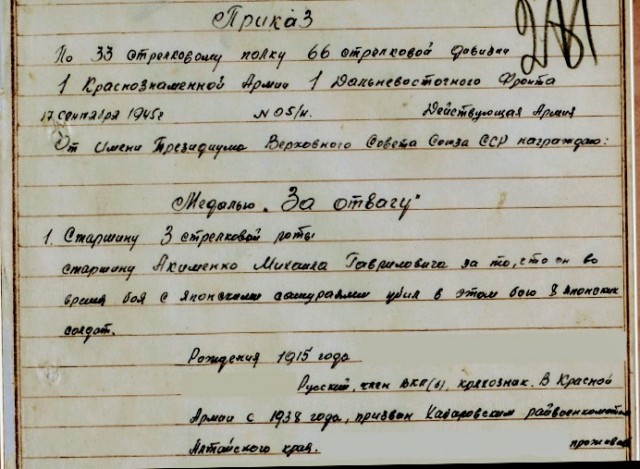 Приказ
По 33 стрелковому полку 66 стрелковой дивизии
1 Краснознаменной Армии 1 Дальневосточного Фронта
17 сентября 1945г N05/н. Действующая Армия
От имени Президиума Верховного Совета Союза ССР награждаю:
Медалью „За отвагу"
1. Старшину 3 стрелковой роты
старшину Акименко Михаила Гавриловича за то, что он во
время боя с японскими самураями убил в этом бою 8 японских
солдат.
Рождения 1915 года
Русский, член ВКП(б), краснознак. В Красной
Армии с 1938 года, призван райвоенкомато
Алтайского края. прожова